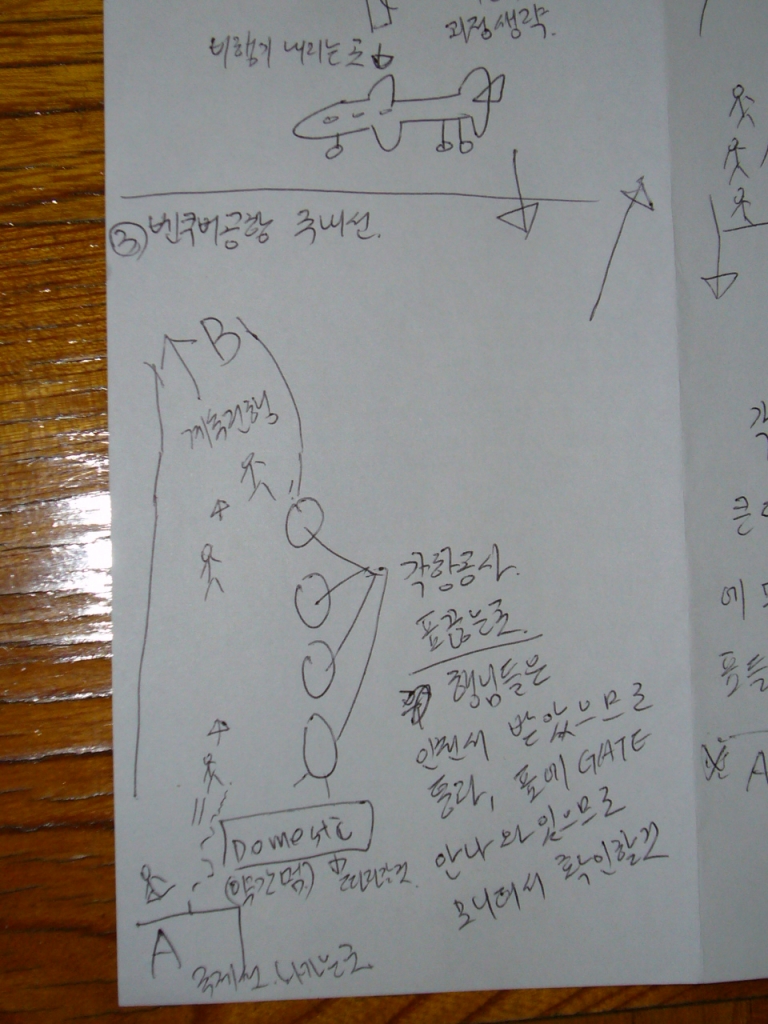 과정생략.
비행기 내리는곳
③ 벤쿠버공항 국내선.
B
계속진행
각항공사.
표끊는곳.
형님들은
인천서 받았으므로
통과, 표에 GATE
안나와있으므로
모니터서 확인할것
Domestic
(약간멈)
따라갈것.
A
국제선. 나가는곳
각
큰
에
표들
A